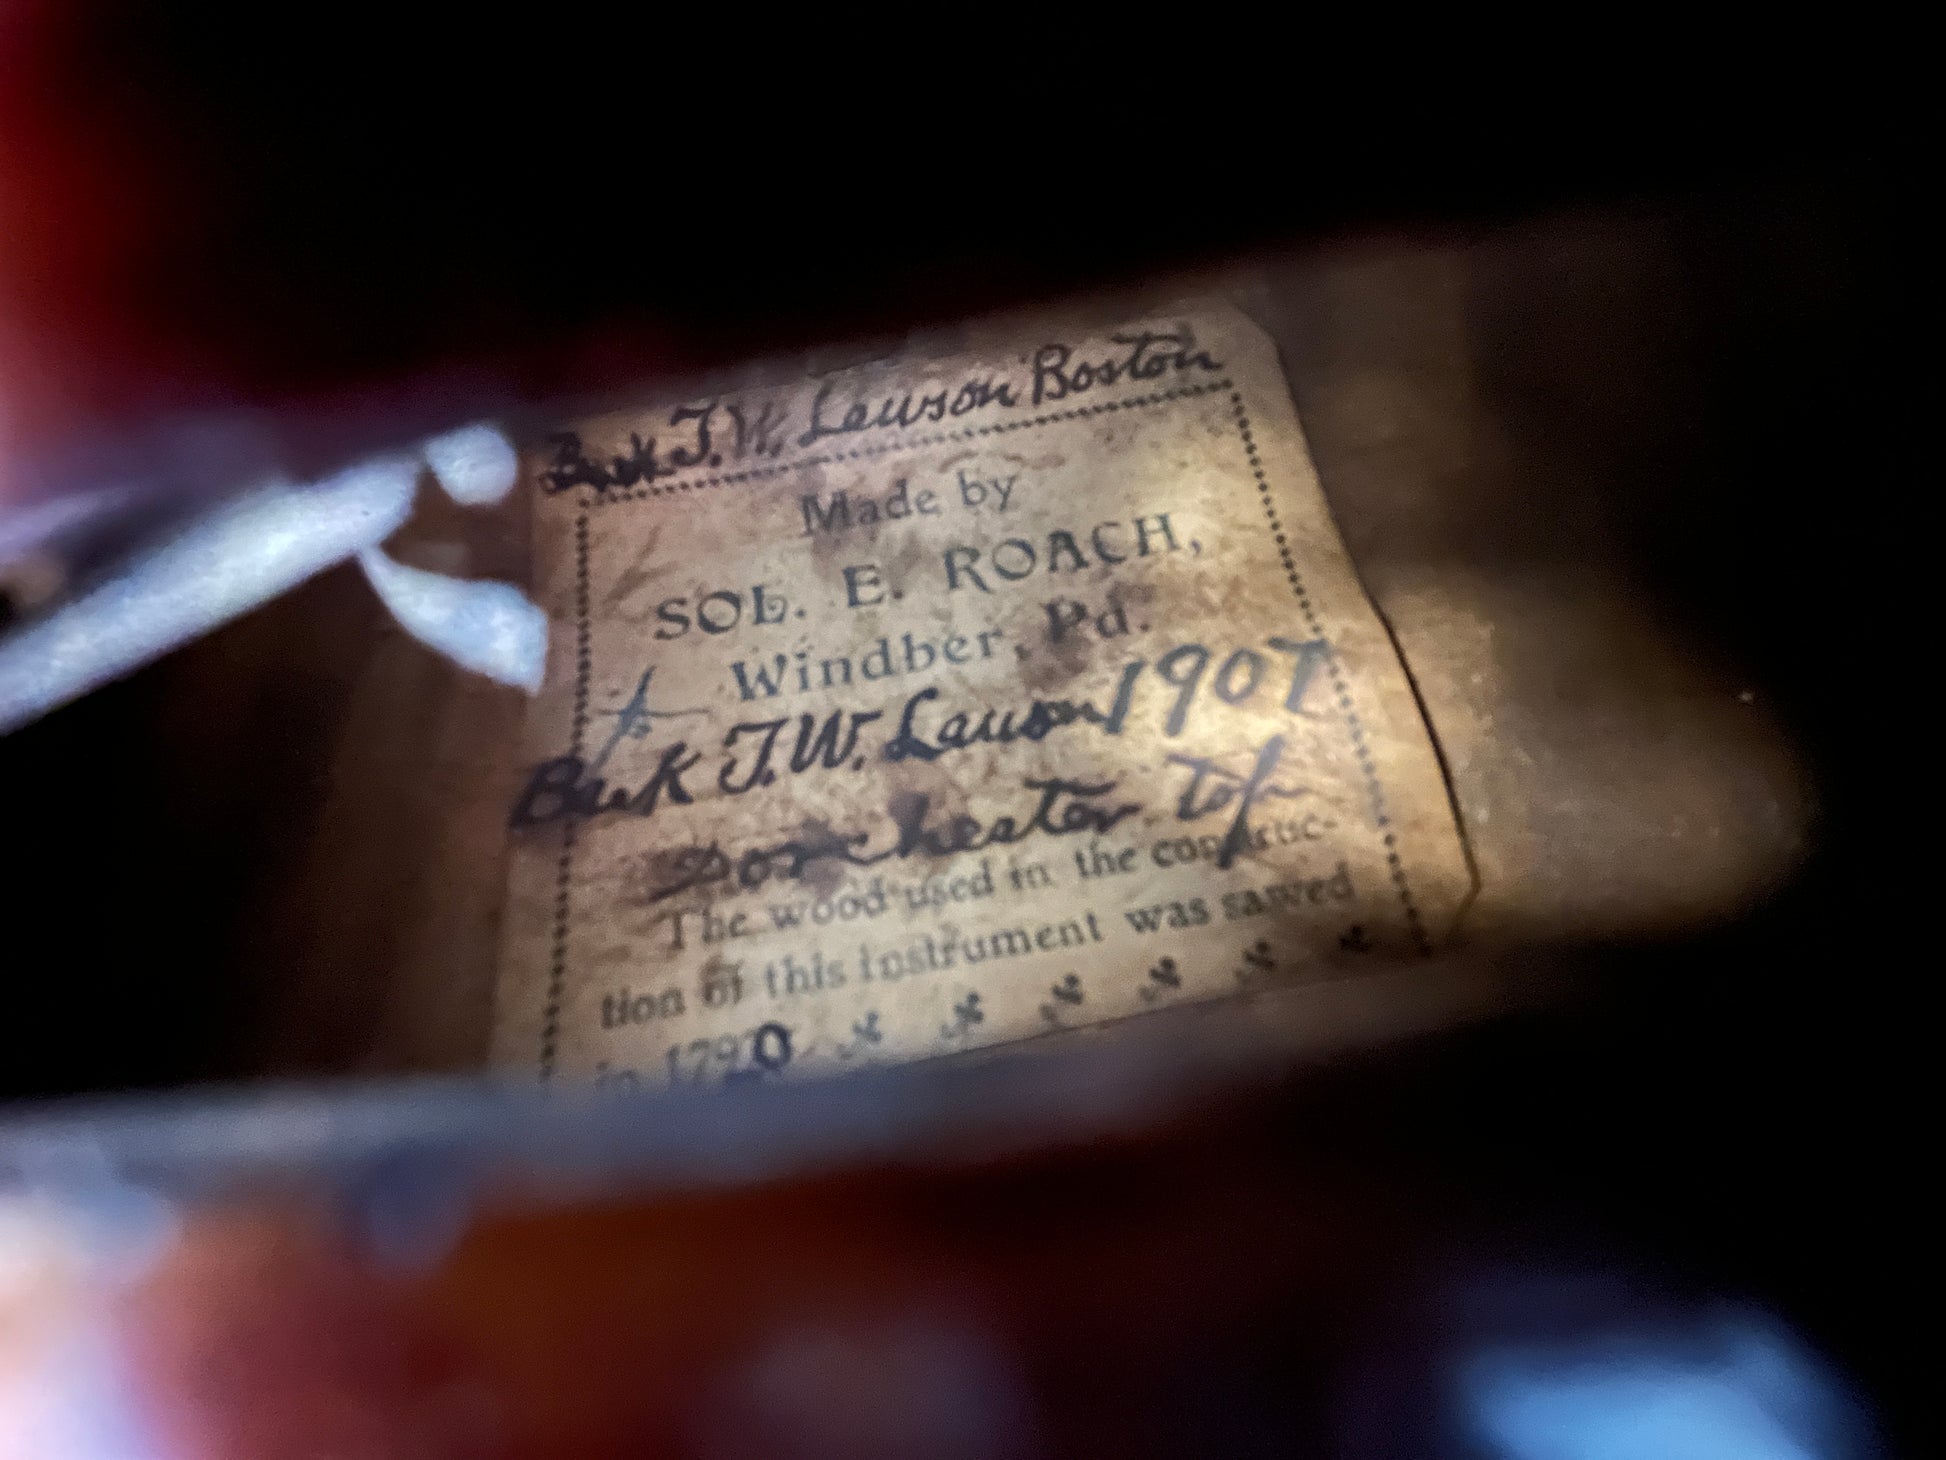 Back T.W. Lawson Boston
Made by
SOL. E. ROACH,
Windber, Pa.
Back T.W. Lawson 1907
Dorchester Top
The wood used in the construc-
tion of this instrument was sawed
in 1790